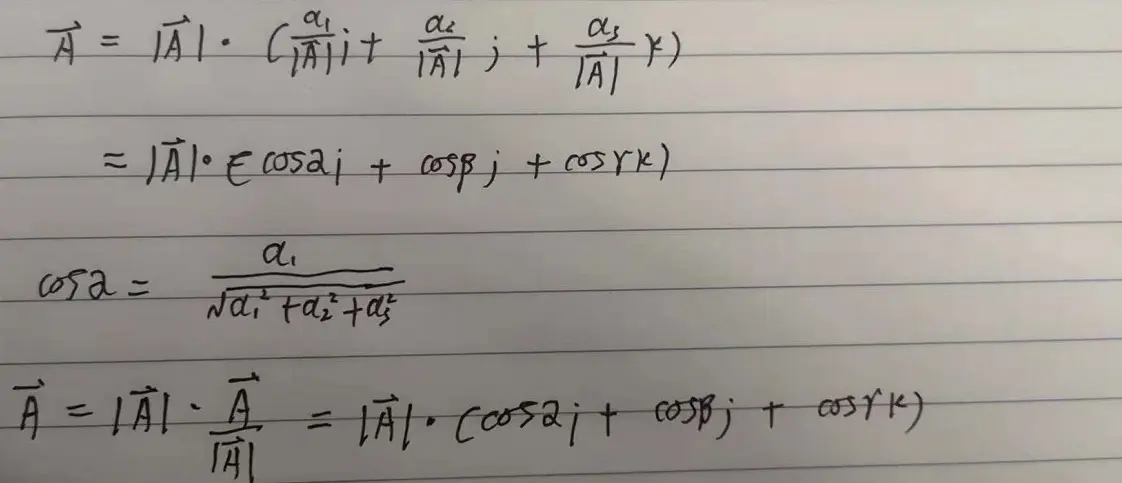 $\vec{A} = |\vec{A}| \cdot (\frac{a_1}{|\vec{A}|} i + \frac{a_2}{|\vec{A}|} j + \frac{a_3}{|\vec{A}|} k)$
$= |\vec{A}| \cdot (\cos\alpha i + \cos\beta j + \cos\gamma k)$
$\cos\alpha = \frac{a_1}{\sqrt{a_1^2 + a_2^2 + a_3^2}}$
$\vec{A} = |\vec{A}| \cdot \frac{\vec{A}}{|\vec{A}|} = |\vec{A}| \cdot (\cos\alpha i + \cos\beta j + \cos\gamma k)$